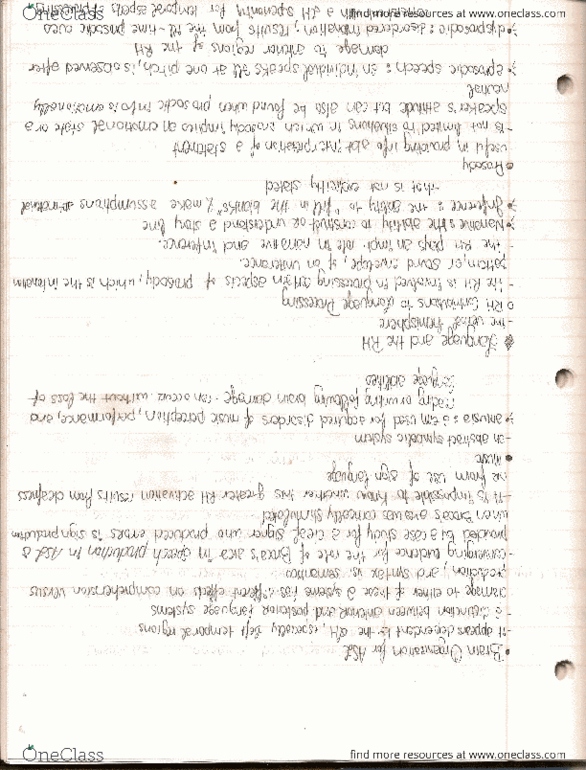 OneClass
find more resources at www.oneclass.com
• Brain Organization for ASL
- It appears dependent is the LH, especially left temporal regions
- distinction between anterior and posterior language systems
damage to either of these 2 systems has different effects on comprehension versus
production, and syntax vs. semantics
- converging evidence for the role of Broca's area in speech production in ASL is
provided by a case study for a deaf signer who produced errors is sign production
when Broca's area was cortically stimulated
- It is impossible to know whether this greater RH activation results from deafness
or from use of sign language
• Music
- an abstract symbolic system
amusia: a term used for acquired disorders of music perception, performance, and
reading or writing following brain damage - can occur without the loss of
language abilities
Language and the RH
- the "other" hemisphere
RH Contributions to Language Processing
- the RH is involved in processing certain aspects of prosody, which is the intonation
pattern, or sound envelope, of an utterance.
- the RH plays an impt role in narrative and inference.
Narrative: the ability to construct or understand a story line
Inference: the ability to "fill in the blanks" & make assumptions abt material
that is not explicitly stated
• Prosody
useful in providing info abt interpretation of a statement
- is not limited to situations in which prosody implies an emotional state or a
speaker's attitude but can also be found when prosodic info is emotionally
neutral
aprosodic speech: an individual speaks all at one pitch, is observed after
damage to anterior regions of the RH
dysprosodic: disordered intonation, results from the
find more resources at www.oneclass.com
OneClass